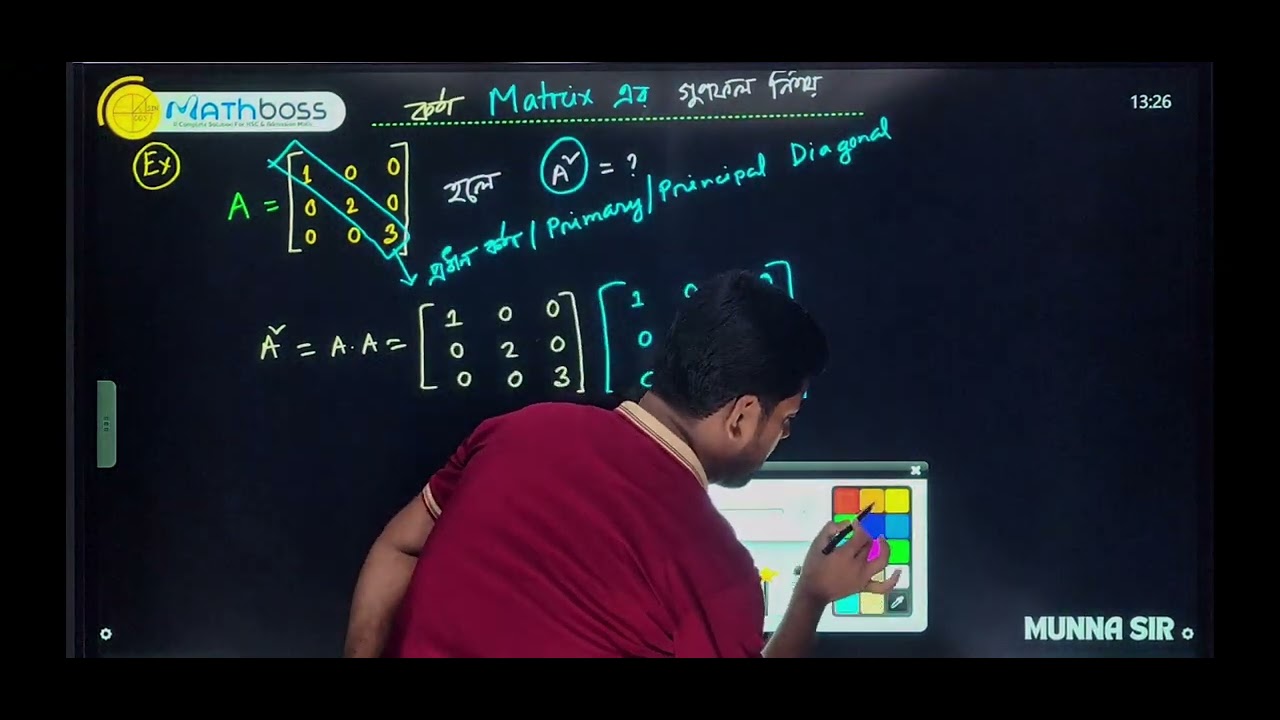 MATHBOSS
A Complete Solution For HSC & Admission Math
SIN
COS
কর্ণ Matrix এর গুণফল নির্ণয়
13:26
Ex
A = [1 0 0
0 2 0
0 0 3] হলে A² = ?
প্রধান কর্ণ / Primary / Principal Diagonal
A² = A.A = [1 0 0
0 2 0
0 0 3] [1 0 0
0
MUNNA SIR